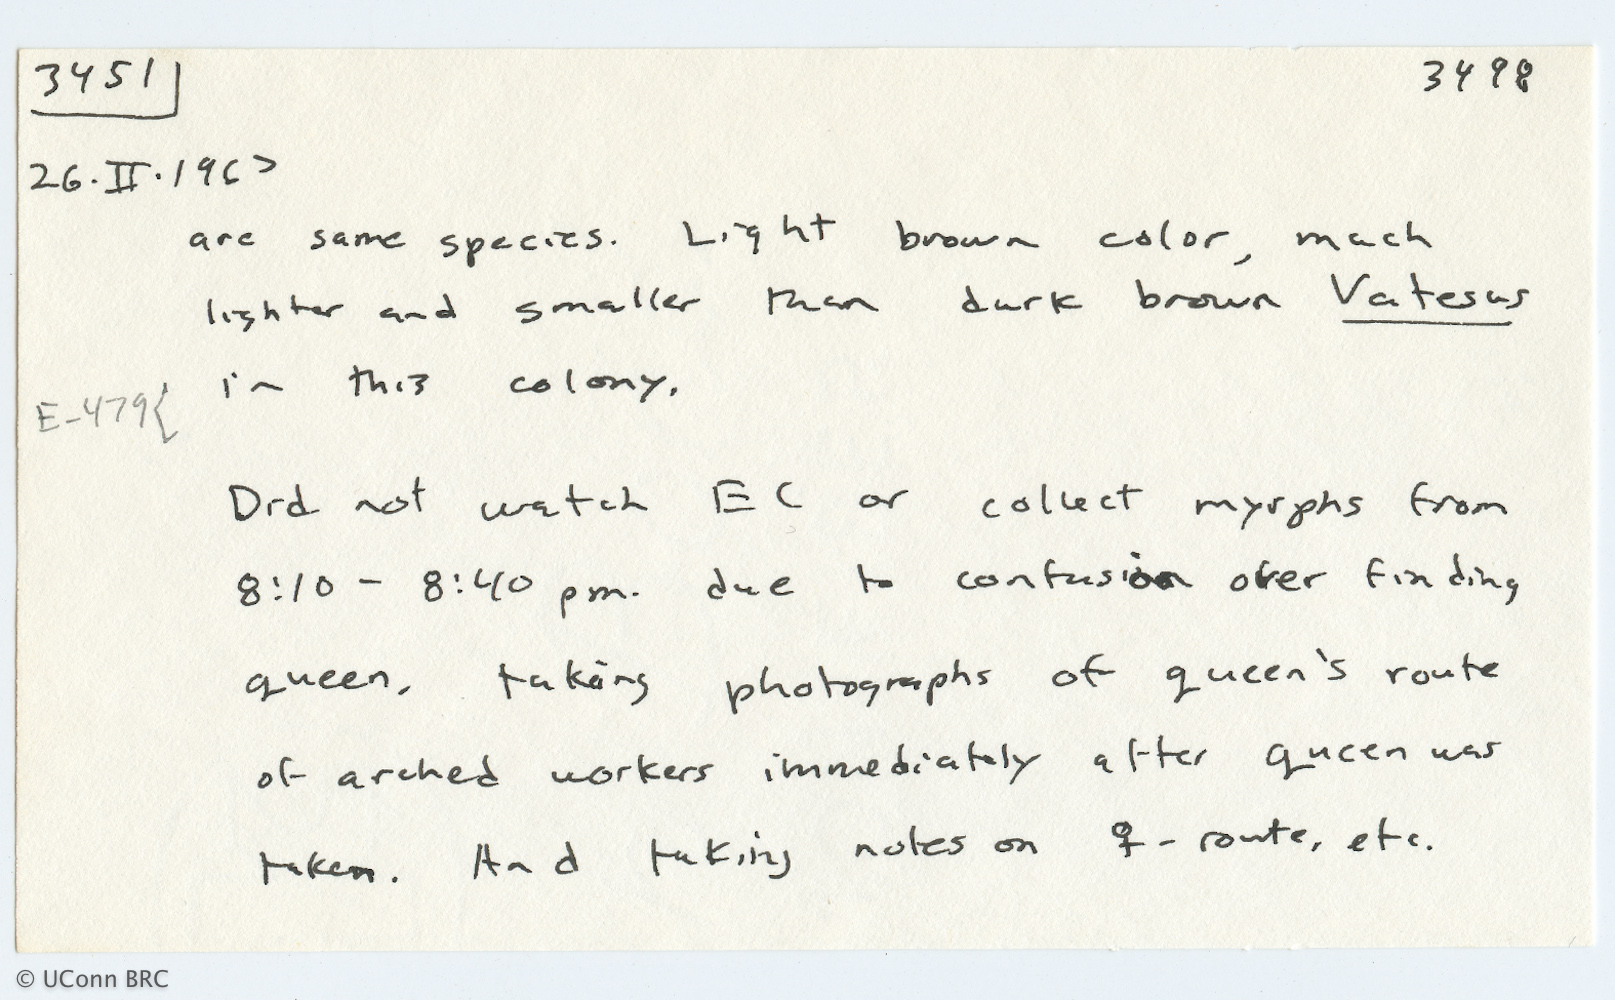 3451
3498
26.II.1967
are same species. Light brown color, much
lighter and smaller than dark brown Vatesus
in this colony.
E-479{
Did not watch EC or collect myrphs from
8:10 - 8:40 pm. due to confusion over finding
queen, taking photographs of queen's route
of arched workers immediately after queen was
taken. And taking notes on ♀-route, etc.
© UConn BRC